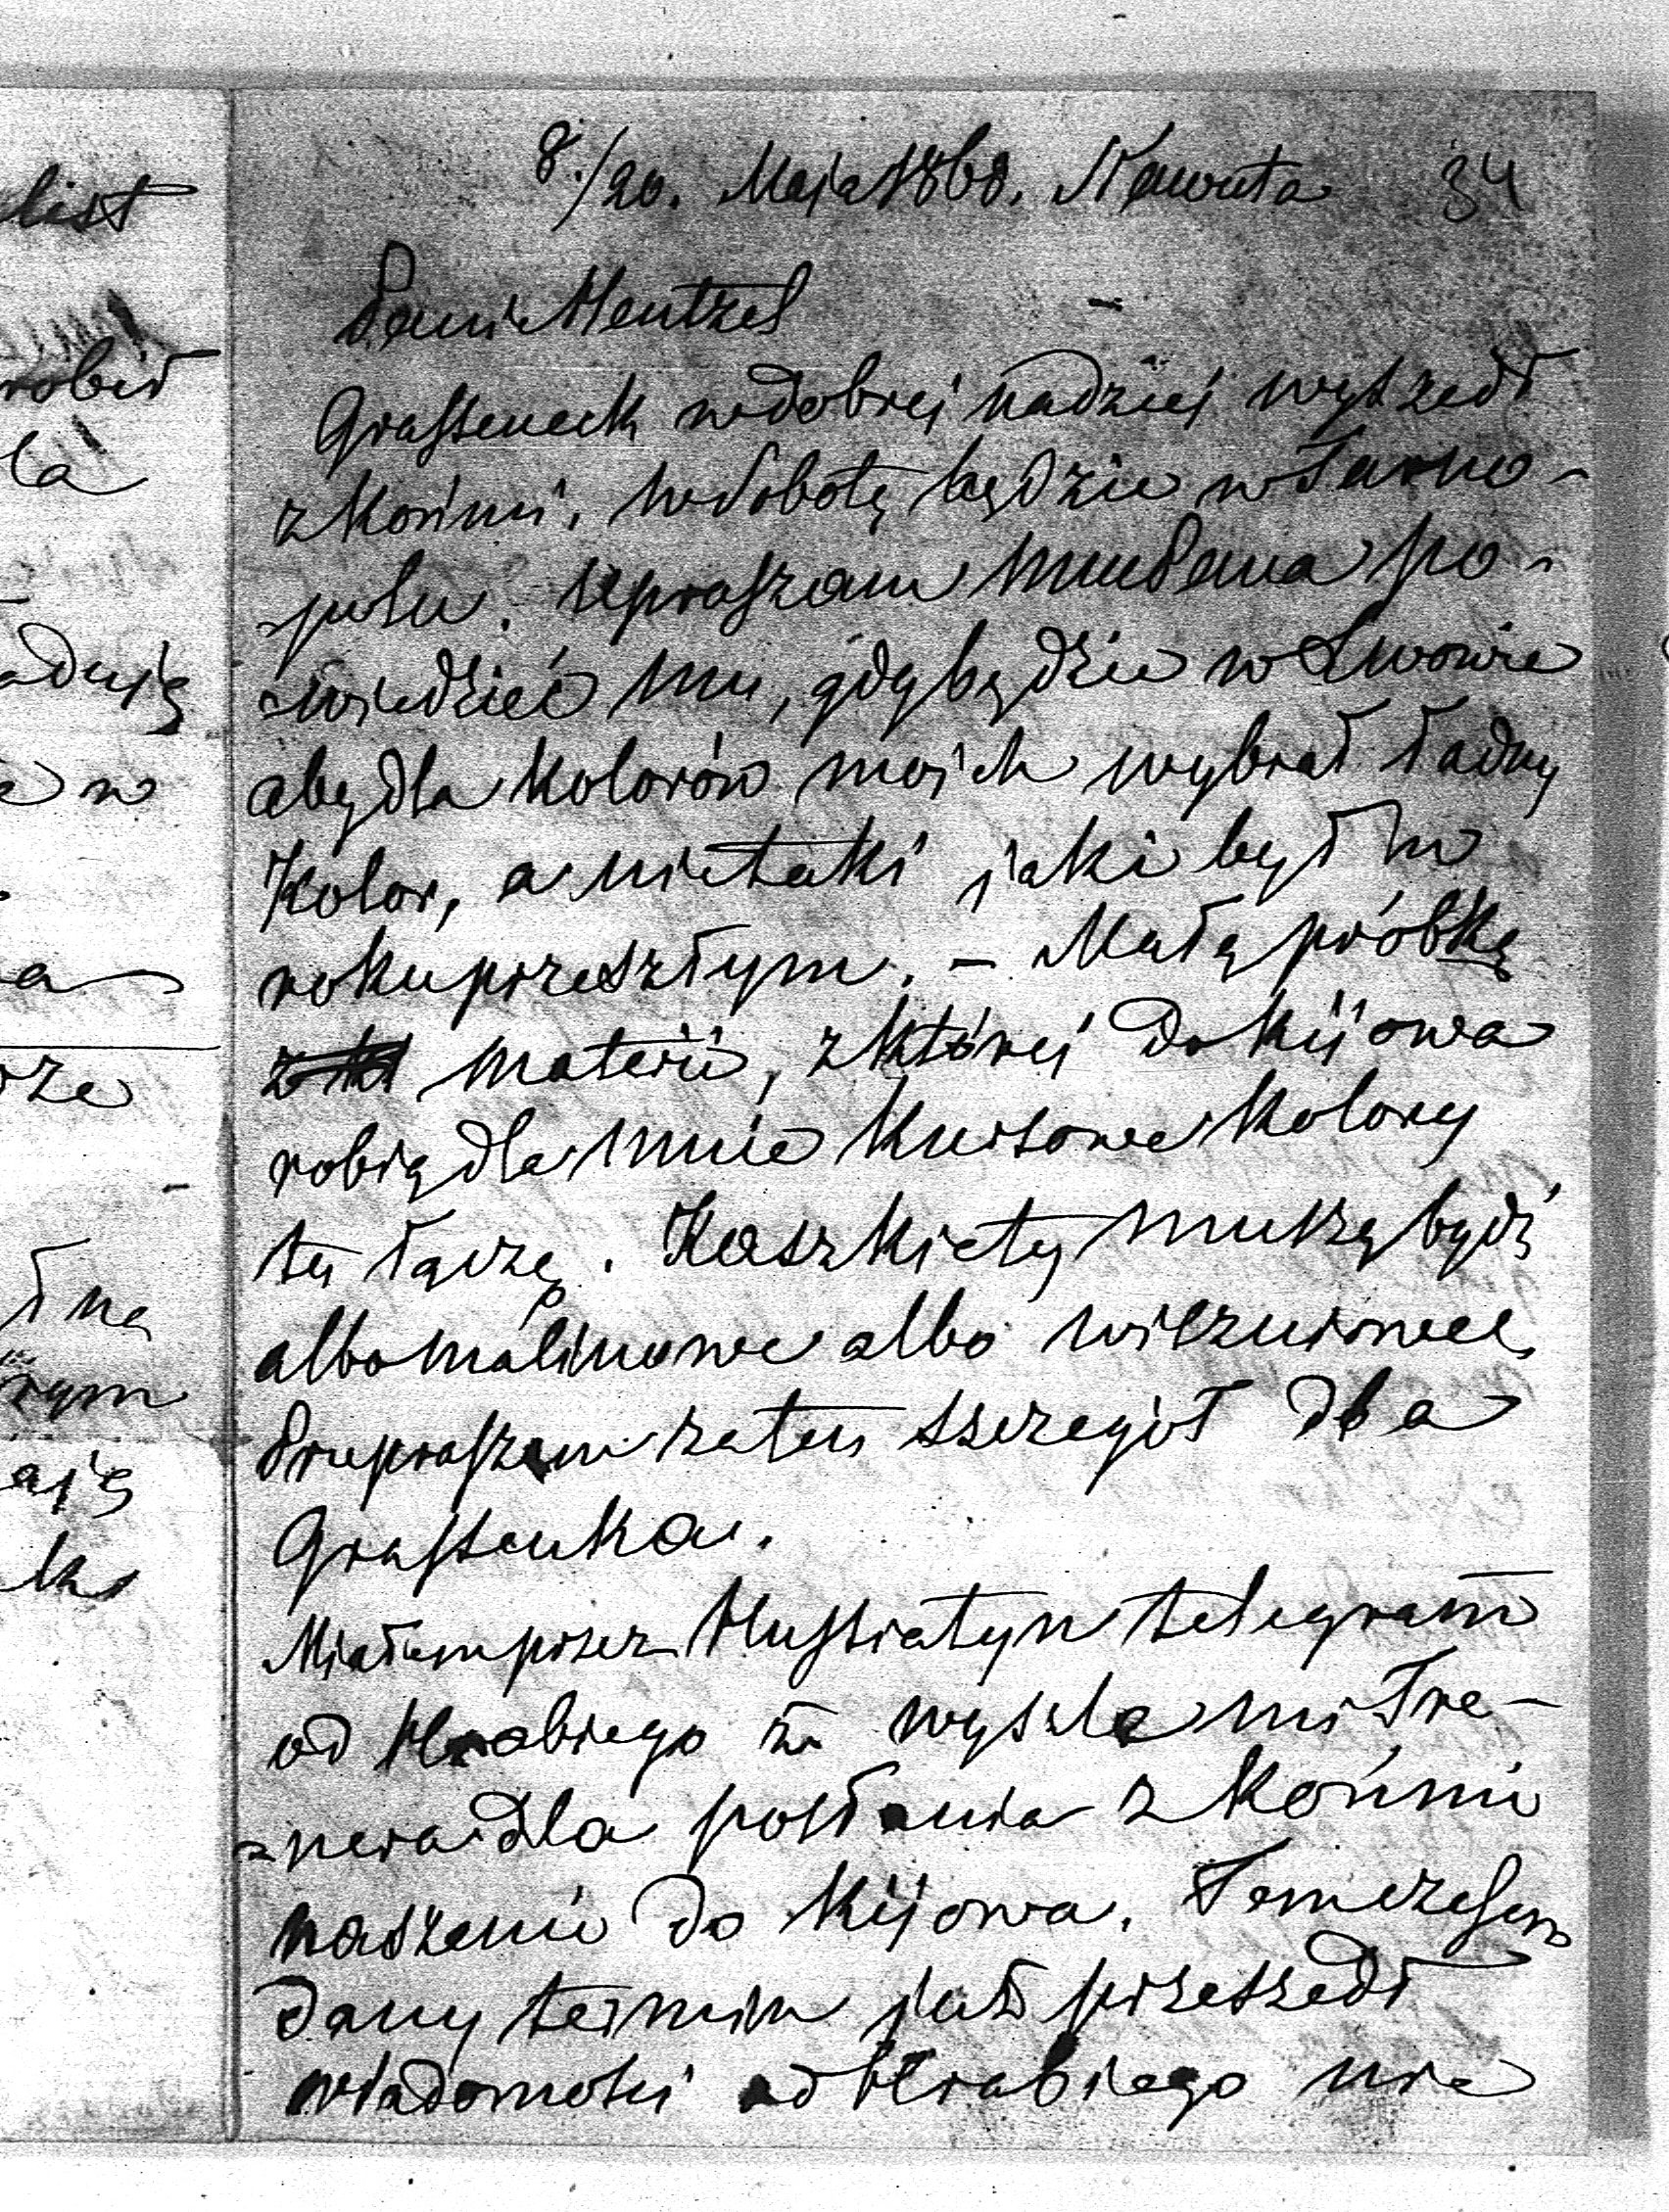 list
robił
la
aduję
w
a
rze
ną
rym
ają
8./20. Maja 1868. Nawuta 34
Panie Mentzel
Grasseneck w dobrej nadziej wyszedł
z końmi, w Sobotę będzie w Tarno-
-polu. Upraszam mu Pana po-
-wiedzieć mu, gdy będzie w Lwowie
aby dla kolorów moich wybrał ładny
Kolor, a nie taki jaki był w
roku przeszłym. – Małą próbkę
materii, z której do Kijowa
robią dla mnie kursowe kolory
tu łączę. Kaszkiety muszą bydź
albo malinowe albo wiszniowe,
Przepraszam za ten szczegół dla
Grassenka.
Miałem przez Hussiatyn telegram
od Hrabiego że wyszle mi Tre-
-nera dla posłania z końmi
naszemi do Kijowa. Tem czasem
dany termin już przeszedł
wiadomości od Hrabiego nie